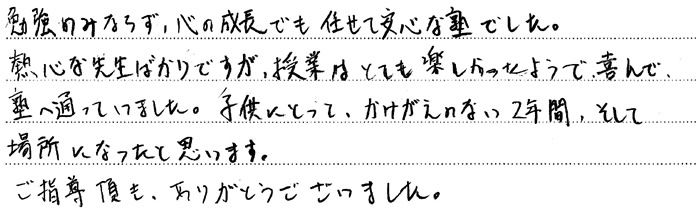 勉強のみならず、心の成長でも任せて安心な塾でした。
熱心な先生ばかりですが、授業はとても楽しかったようで、喜んで、
塾へ通っていました。子供にとって、かけがえのない2年間、そして
場所になったと思います。
ご指導頂き、ありがとうございました。